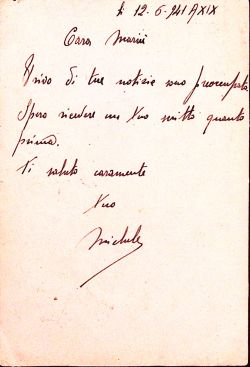 li 12-6-941 A XIX
Caro Marini
Privo di tue notizie sono preoccupato.
Spero ricevere un tuo scritto quanto
prima.
Ti saluto caramente
tuo
Michele